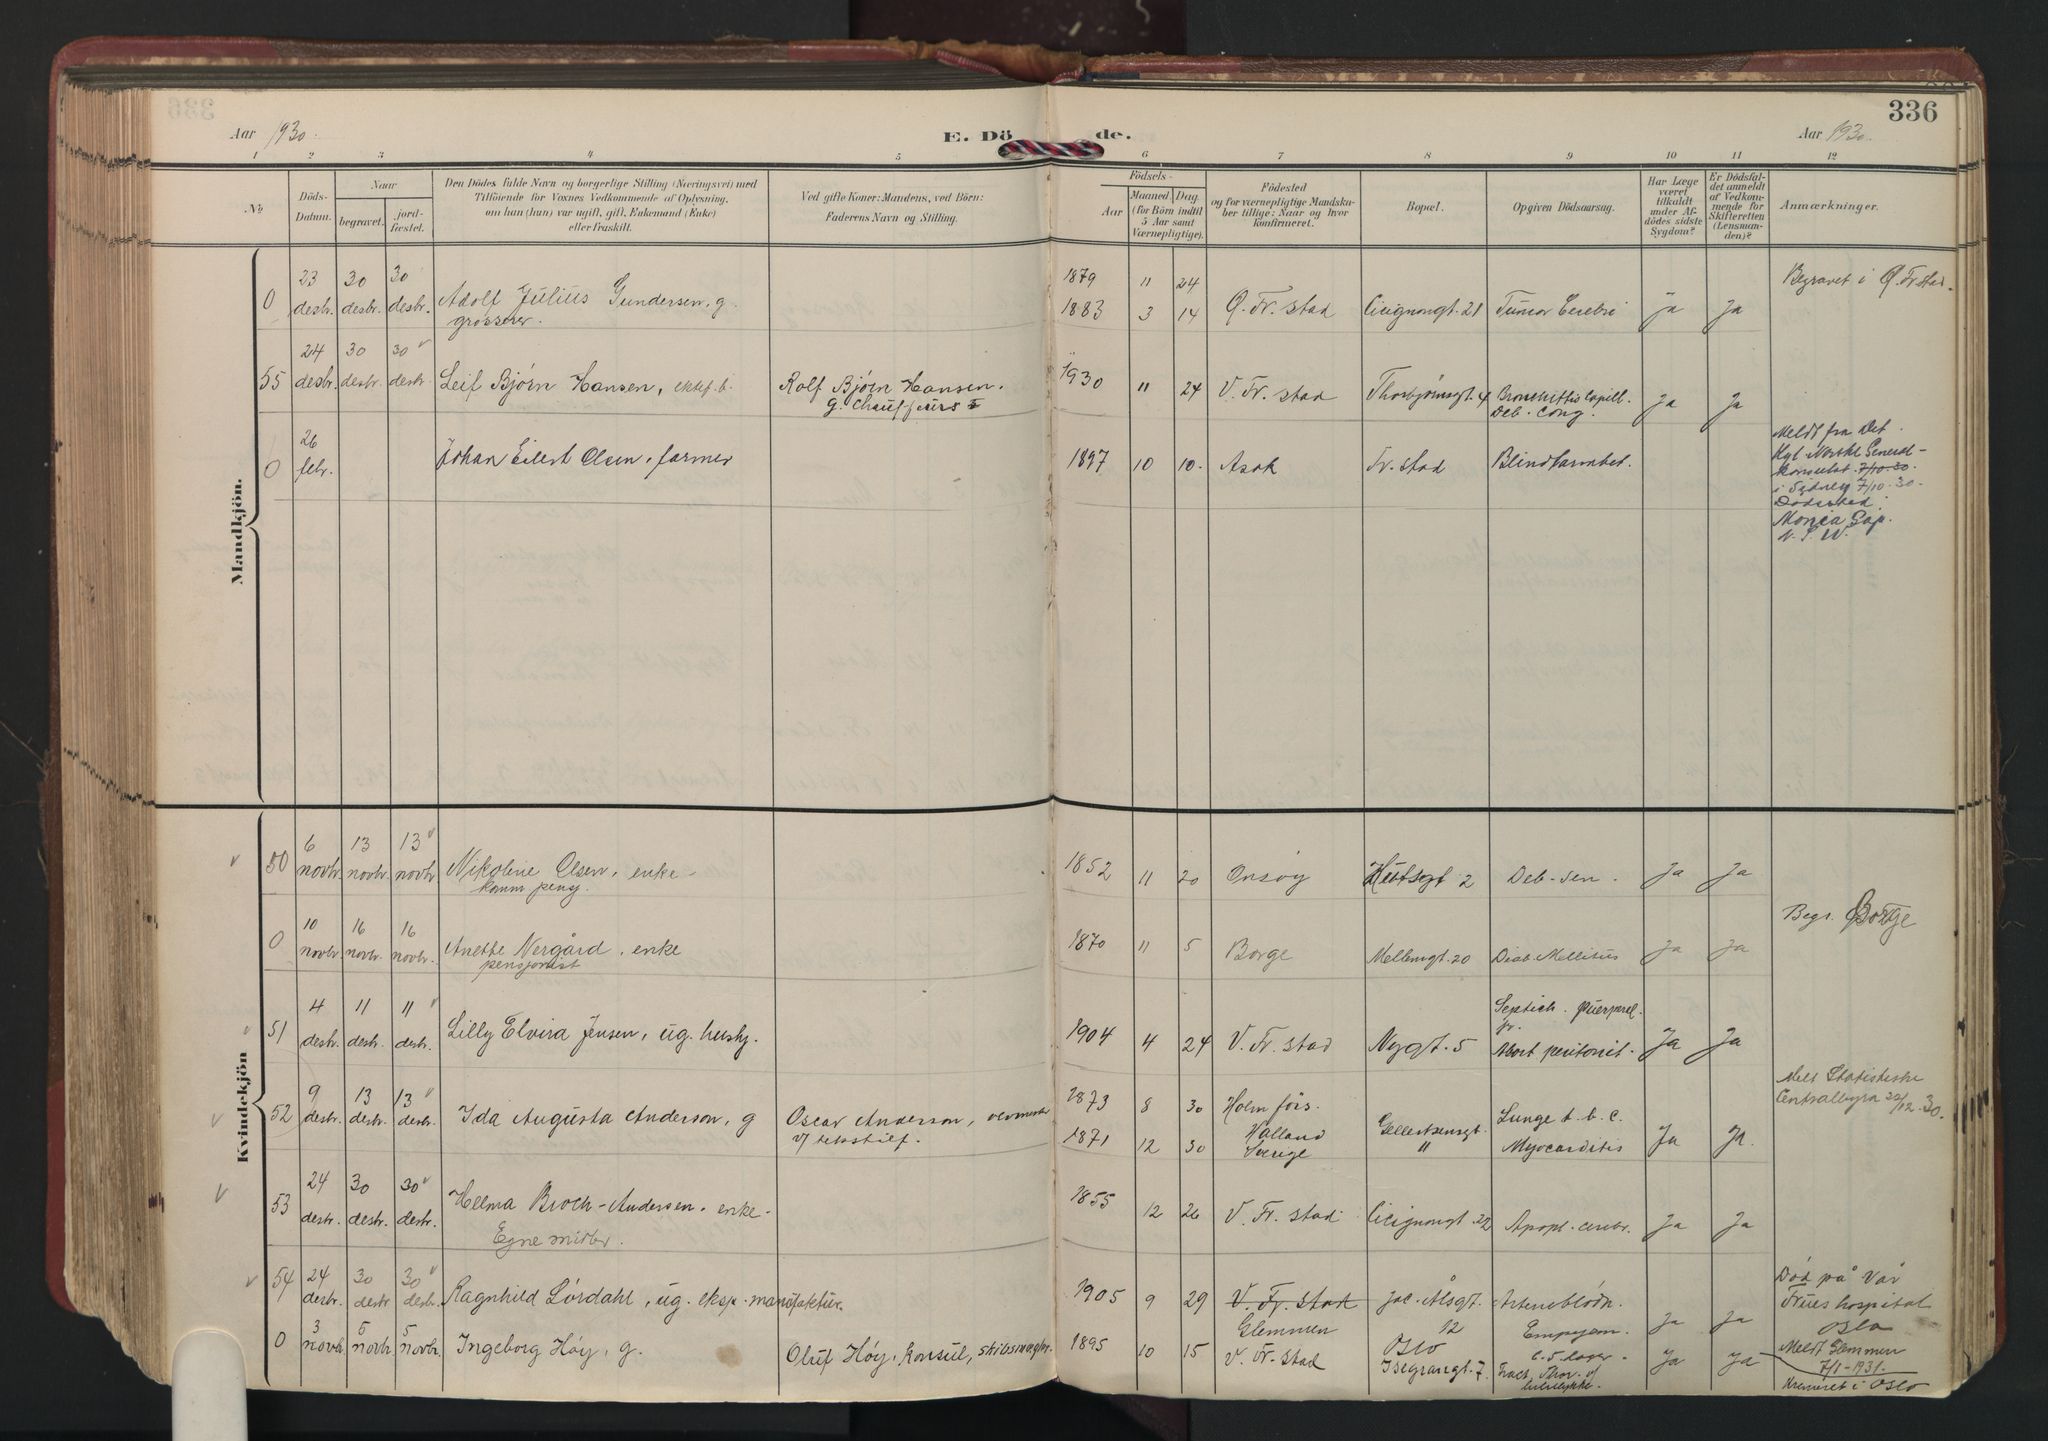 336
Aar 1930.
E. Dö de.
Aar 1930.
1 2 3 4 5 6 7 8 9 10 11 12
No
Döds-
Datum.
Naar
begravet.
jord-
fæstet.
Den Dödes fulde Navn og borgerlige Stilling (Næringsvei) med
Tilföiende for Voxnes Vedkommende af Oplysning,
om han (hun) var ugift, gift, Enkemand (Enke)
eller fraskilt.
Ved gifte Koner: Mandens, ved Börn:
Faderens Navn og Stilling.
Födsels-
Aar
Maaned Dag.
(for Börn indtil
5 Aar samt
Værnepligtige).
Födested
og for værnepligtige Mandska-
ber tillige: Naar og hvor
konfirmeret.
Bopæl.
Opgiven Dödsaarsag.
Har Læge
været
tilkaldt
under Af-
dödes sidste
Sygdom?
Er Dödsfal-
det anmeldt
af Vedkom-
mende for
Skifteretten
(Lensman-
den)?
Anmærkninger.
Mandkjön.
0 23 desbr. 30 desbr. 30 desbr. Adolf Julius Gundersen, g.
grosserer.
1879 11 24
1883 3 14 Ø. Fr. stad Cicignongt. 21 Tumor Cerebri ja Ja
Begravet i Ø. Fr. stad.
55 24 desbr. 30 desbr. 30 desbr. Leif Bjørn Hansen, ektef. b. Rolf Bjørn Hansen.
g. Chauffeurs
1930 11 24 V. Fr. stad Thorbjørnsgt. 4 Bronchittis Capill.
Deb. Cong. Ja Ja
0 26 febr. Johan Eilert Olsen, farmer
1897 10 10. Asak Fr. stad Blindtarmbet.
Meldt fra Det
Kgl Norske General-
konsulat 7/10 30.
i Sydney 7/10. 30.
Dødssted
Monica Gap.
N. S. W.
Kvindekjön
50 6 novbr. 13 novbr. 13 novbr. Nikoline Olsen, enke -
komm pensj.
1852 11 20 Onsøy 2 Deb. sen. Ja Ja
0 10 novbr. 16 novbr. 16 novbr. Anette Nergård, enke
pensjonist
1870 11 5 Borge Mellemgt. 20 Diab. Mellitus Ja Ja
Begr. Borge
51 4 desbr. 11 desbr. 11 desbr. Lilly Elvira Jensen, ug. hushj.
1904 4 24 V. Fr. stad Nygt. 5 Septich. puerperal.
Abort peritonit. Ja Ja
52 9 desbr. 13 desbr. 13 desbr. Ida Augusta Anderson, g Oscar Anderson,
v/ tekstilf.
1873 8 30 Holm förs.
1871 12 30 Halland
Sverige
Gellertsensgt. " Lunge t. b. c.
Myocarditis Ja Ja.
Meldt Statistiske
Centralbyrå 22/12. 30.
53 24 desbr. 30 desbr. 30 desbr. Helma Broch-Andersen, enke -
Egne midler.
1855 12 26 V. Fr. stad Cicignongt. 22 Apopl. cerebr. Ja Ja
54 24 desbr. 30 desbr 30 desbr. Ragnhild Lørdahl, ug. eksp. manufaktur.
1905 9 29 V. Fr. stad
Glemmen
Jac. Ålsgt.
12
Empyem. Ja Ja
Død på Vår
Frues hospital
Oslo
Meldt Glemmen
7/1-1931.
0 3 novbr. 5 novbr. 5 novbr. Ingeborg Høy, g. Oluf Høy, konsul, skibsmegler.
1895 10 15 V. Fr. stad Oslo
Isegrangt. 7. Ja Ja
Kremert i Oslo